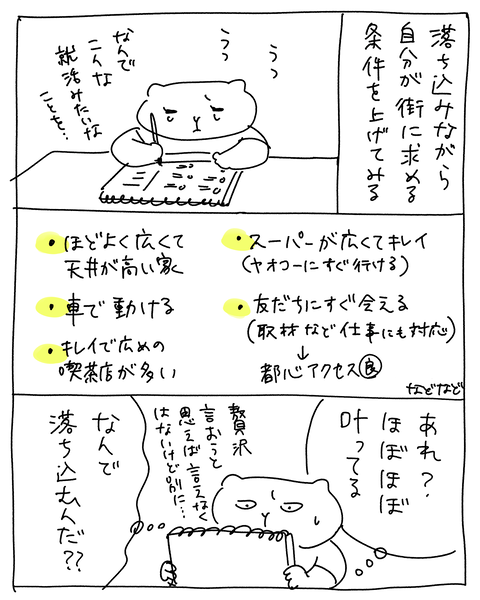 落ち込みながら
自分が街に求める
条件を上げてみる
うっ
うっ
なんで
こんな
就活みたいな
ことを…
・ほどよく広くて
天井が高い家
・車で動ける
・キレイで広めの
喫茶店が多い
・スーパーが広くてキレイ
(ヤオコーにすぐ行ける)
・友だちにすぐ会える
(取材など仕事にも対応)
↓
都心アクセス良
などなど
あれ?
ほぼほぼ
叶ってる
贅沢
言おうと
思えば言えなく
はないけど別に…
なんで
落ち込むんだ??